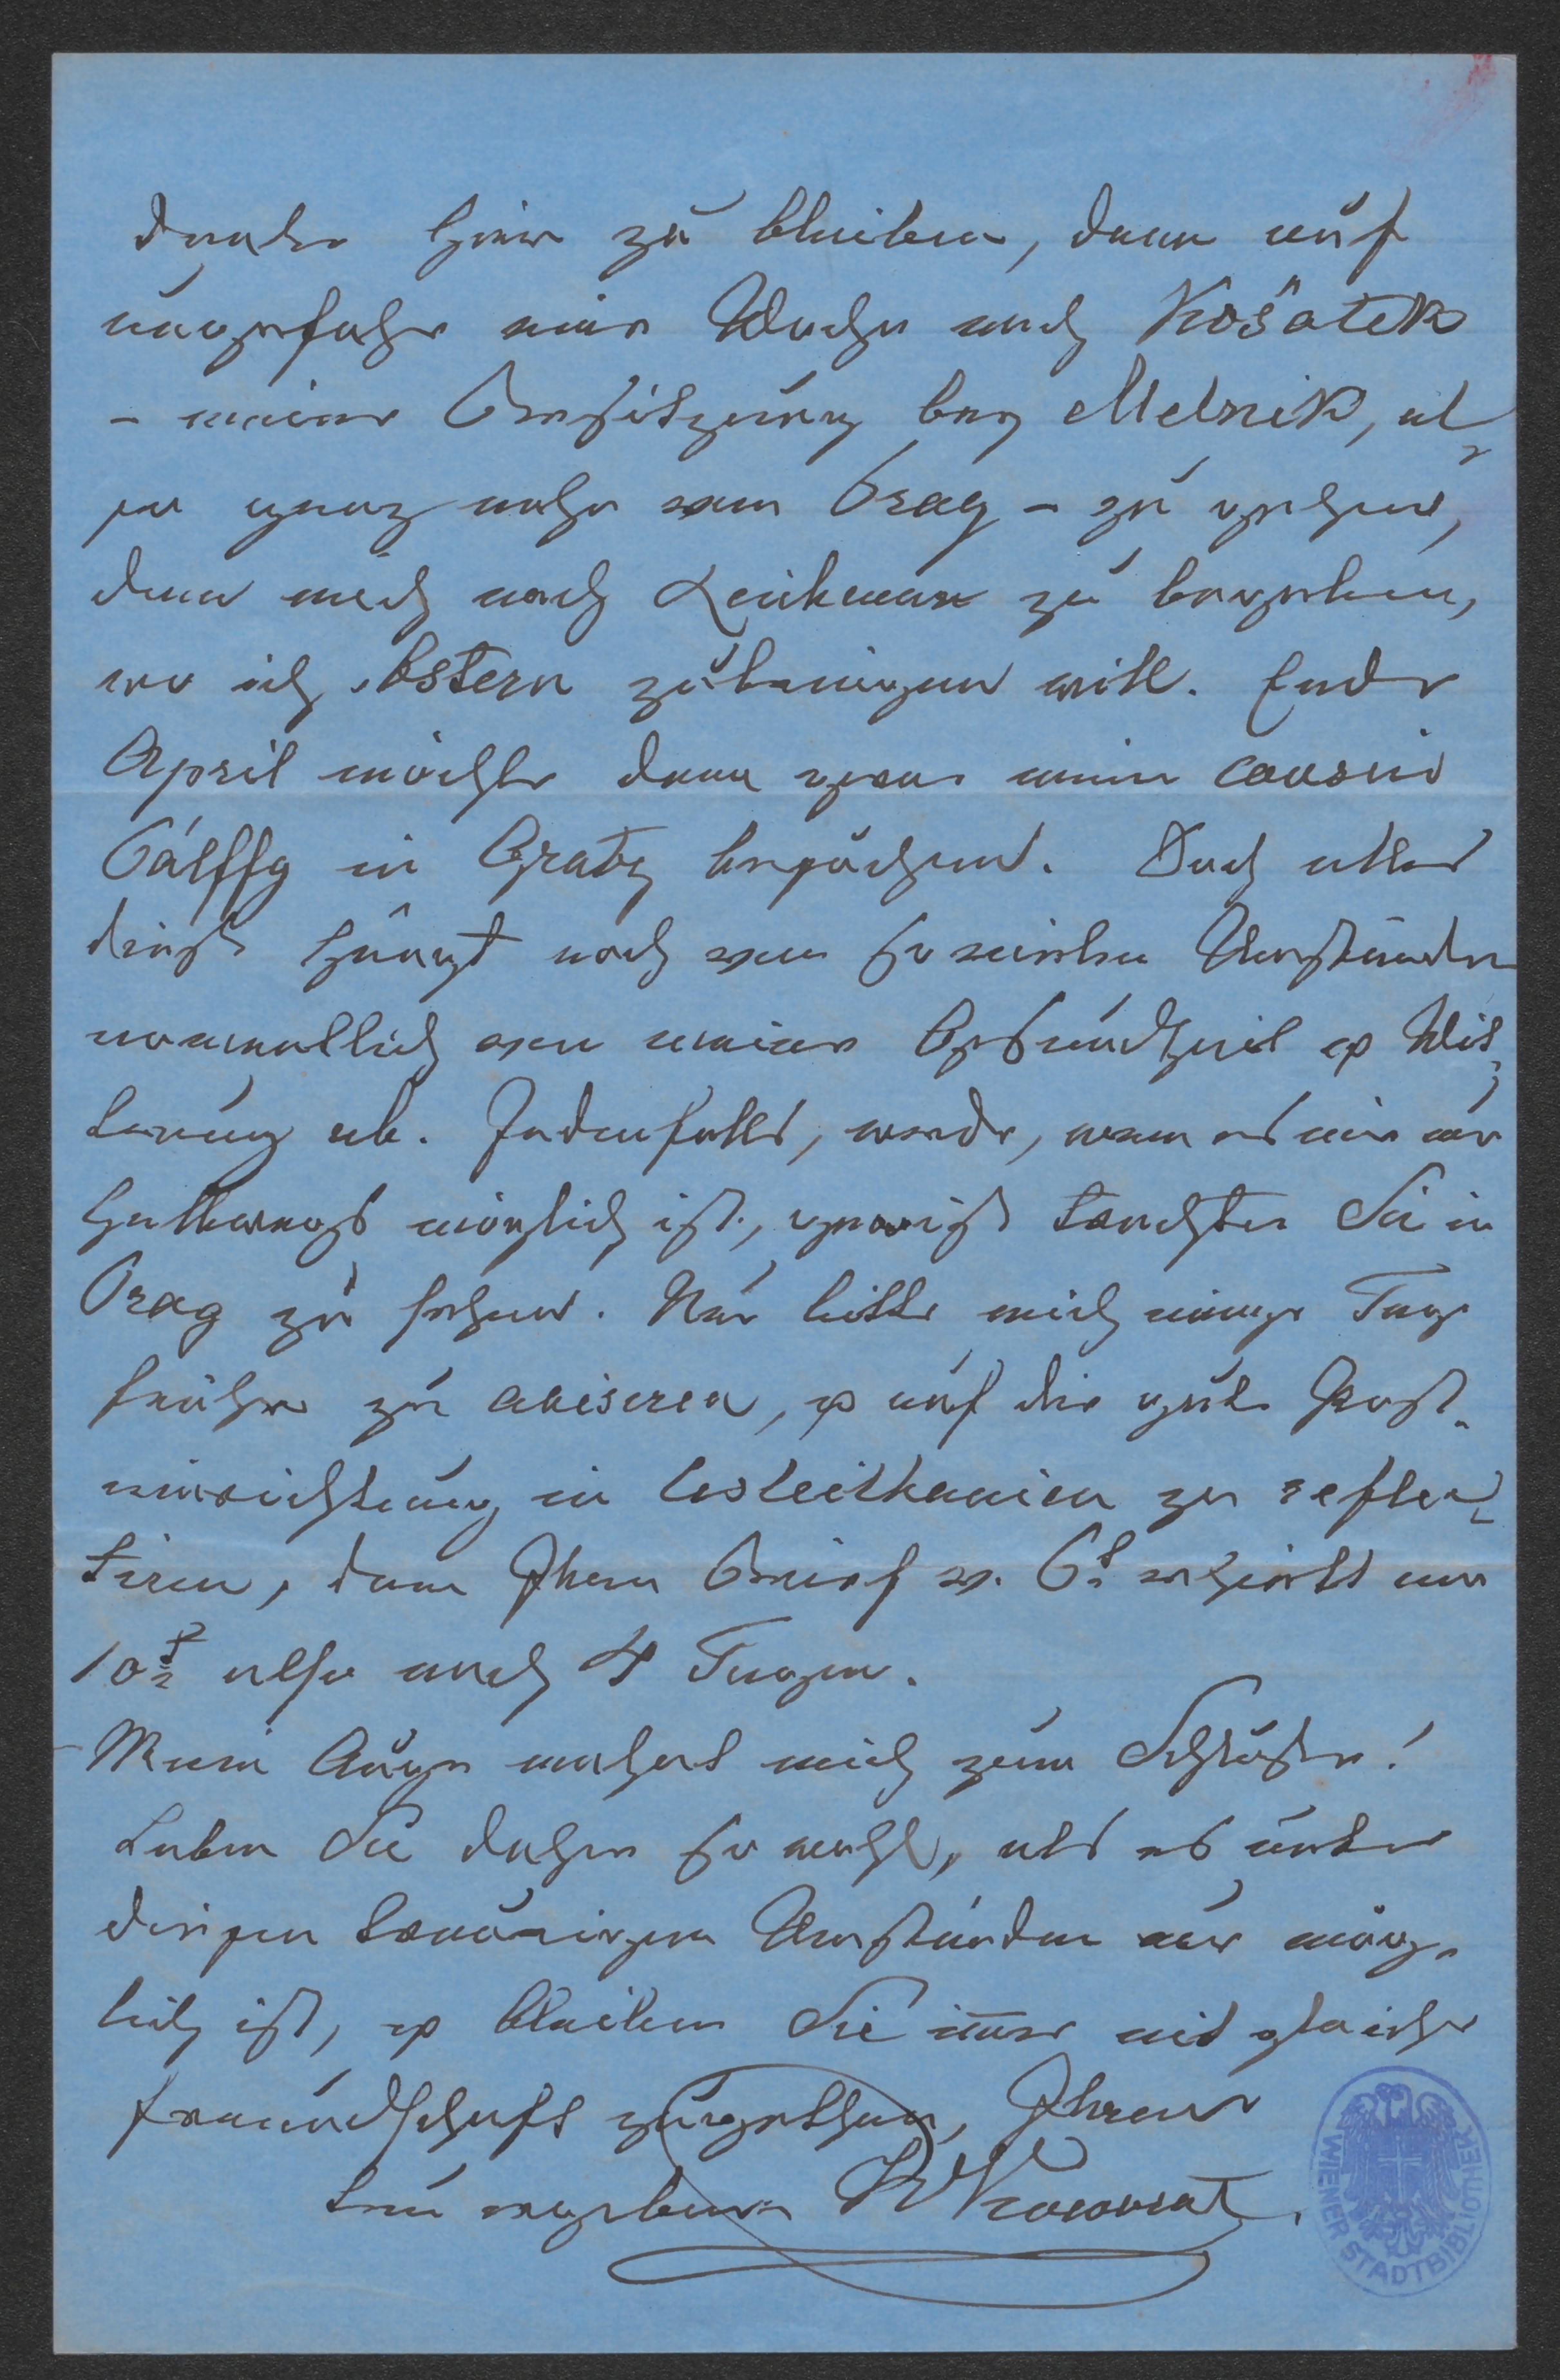 denke hier zu bleiben, dann auf
ungefähr eine Woche nach Košatek
– meine Besitzung bey Melnik, al-
so ganz nahe von Prag – zu gehen,
dann mich nach zu begeben,
wo ich Ostern zubringen will. Ende
April möchte dann gerne mein cousin
Pálffy in Gratz besuchen. Doch alles
dieß hängt noch von so vielen Umständen
namentlich von meiner Gesundheit u Wit-
terung ab. Jedenfalls, werde, wenn es mir nur
halbwegs möglich ist, gewiß trachten Sie in
Prag zu sehen. Nur bitte mich einige Tage
früher zu avisiren, u auf die gute Post-
einrichtung in Cisleithanien zu reflec-
tiren, denn Ihren Brief v. 6t erhielt am
10t also nach 4 Tagen.
Mein Auge mahnt mich zum Schluße!
Leben Sie daher so wohl, als es unter
diesen traurigen Umständen nur mög-
lich ist, u bleiben Sie immer mit gleicher
Freundschaft zugethan, Ihrem
treu ergebenen Kolowrat
WIENER STADTBIBLIOTHEK